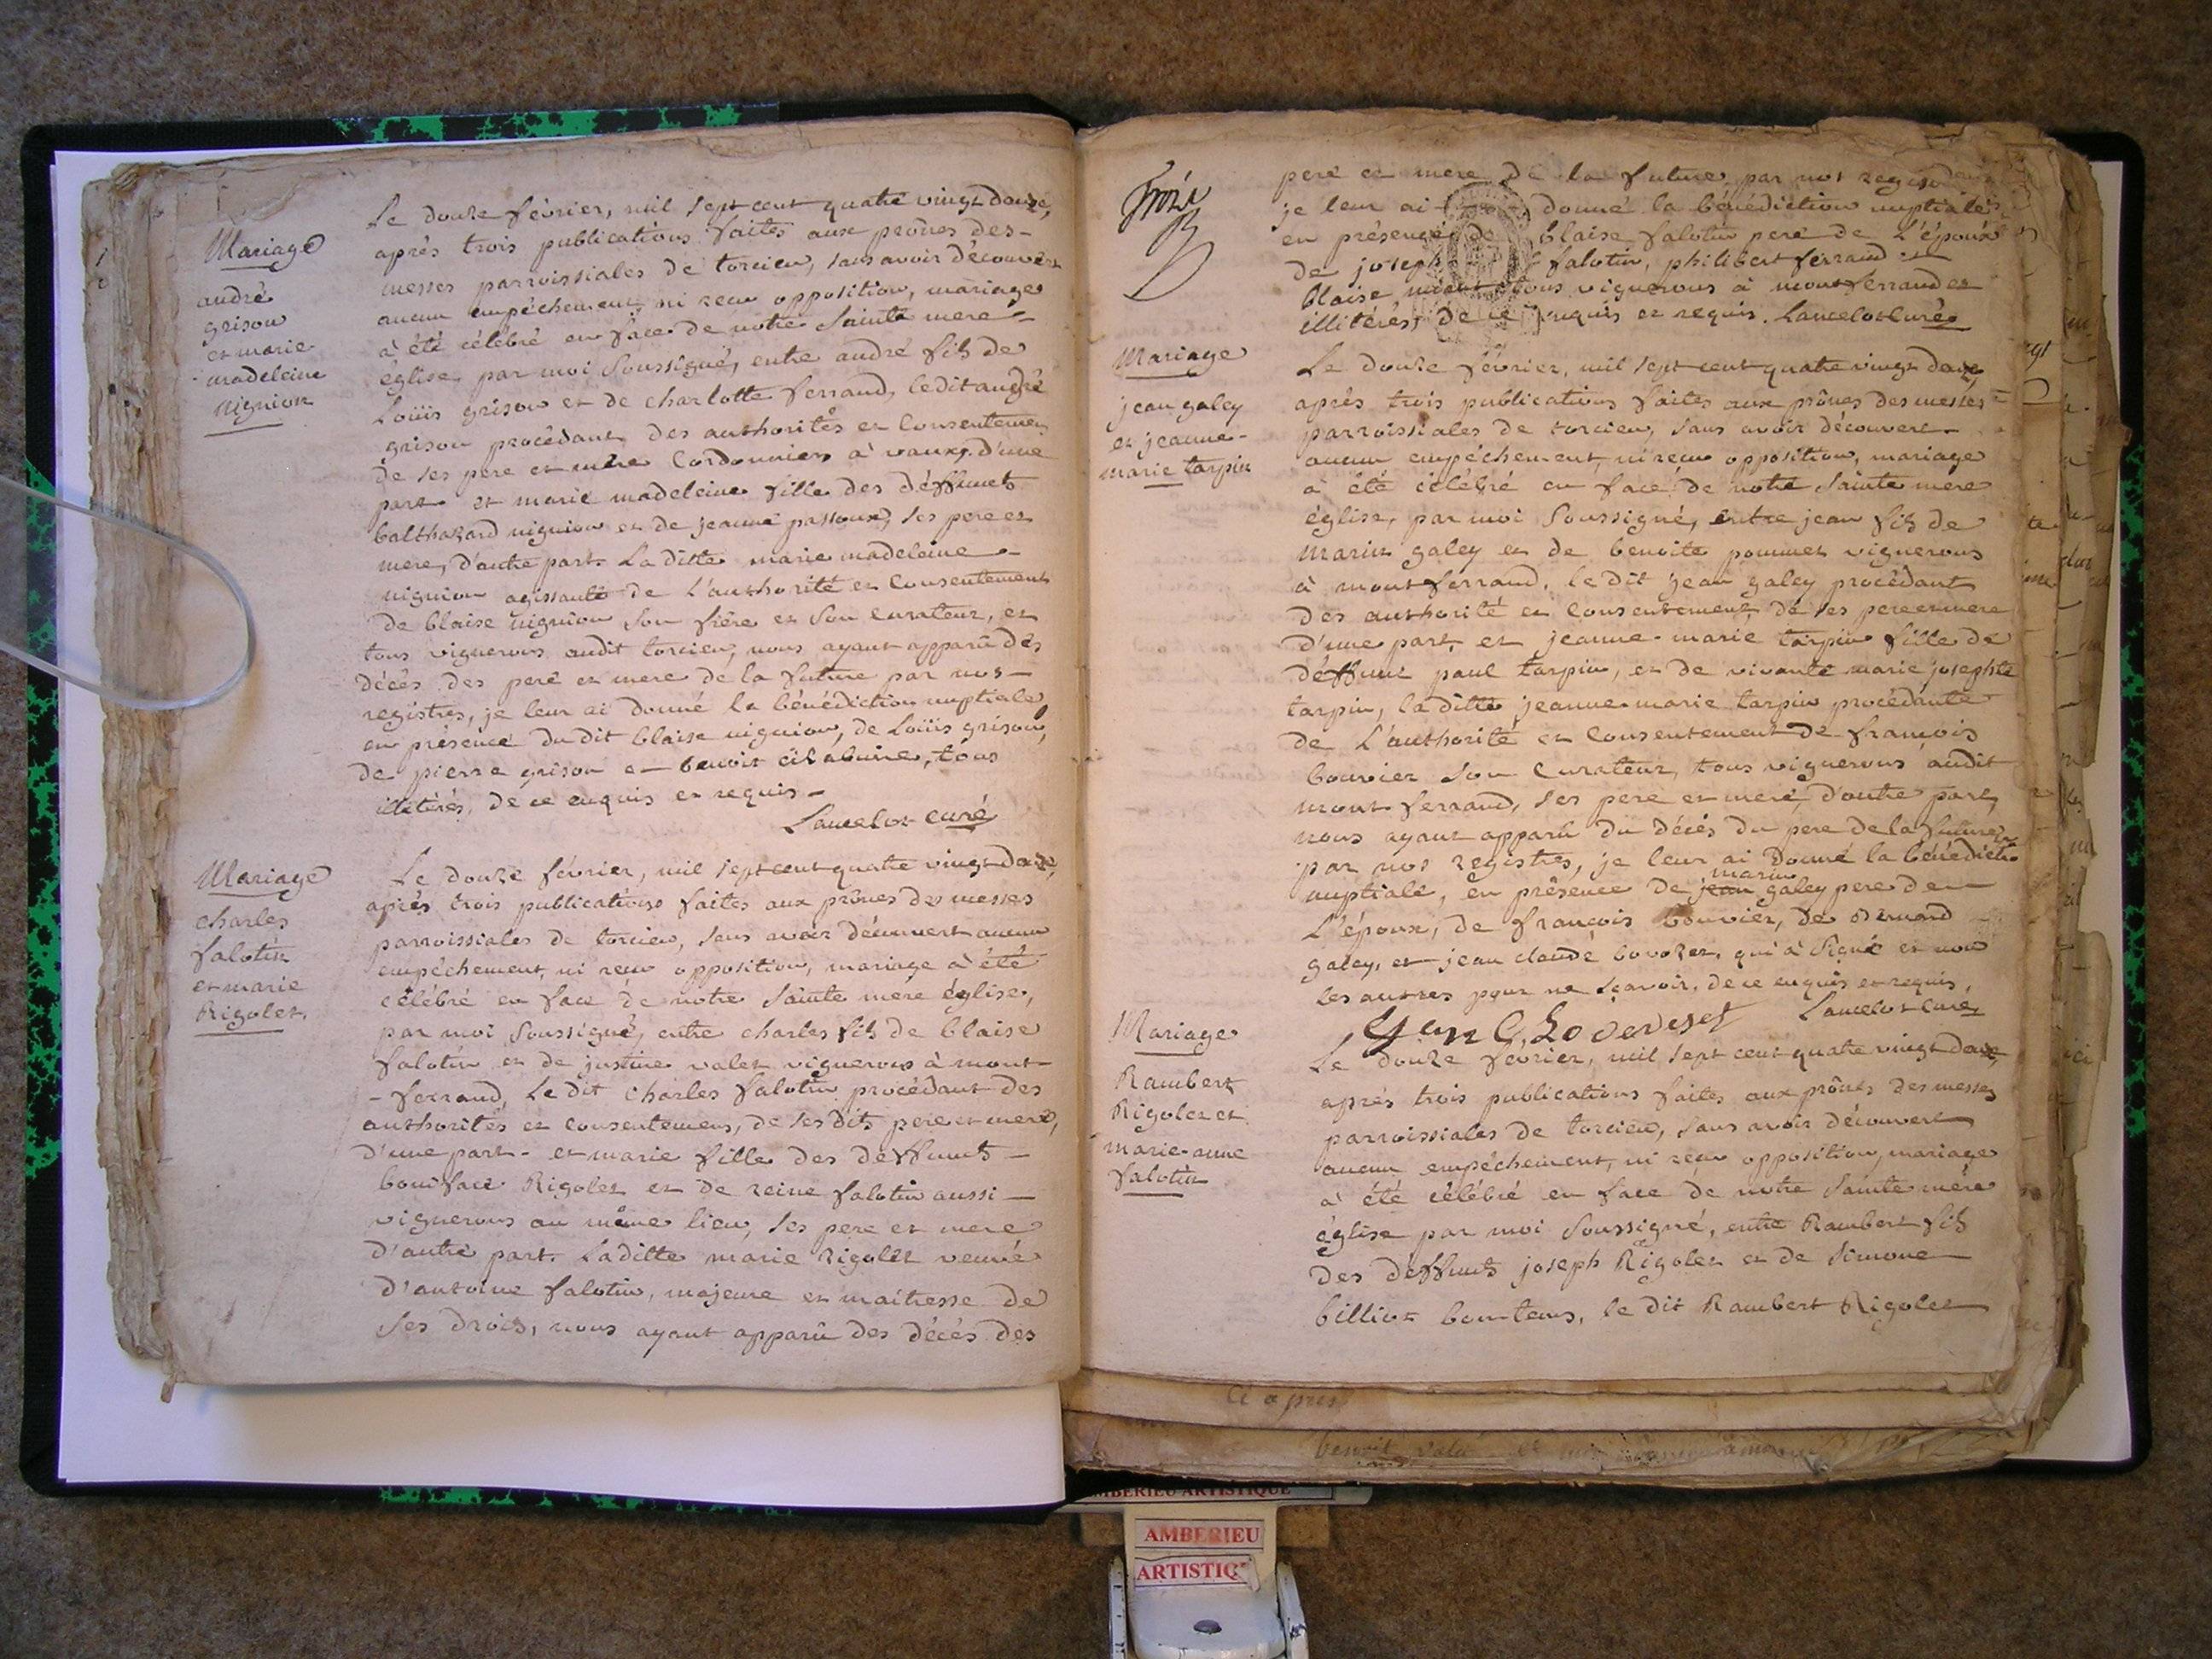 Mariage
andré
grison
et marie
madeleine
vignion
Le douze février, mil sept cent quatre vingt douze,
après trois publications faites aux prônes des-
messes parroissiales de torcieu, sans avoir découvert
aucun empéchement ni reçu opposition, mariage
à été célébré en face de notre Sainte mere
église, par moi Soussigné, entre andré fils de
Loüis grison et de charlotte ferrand, ledit andré
grison procédant des authorités et Consentemens
de ses pere et mere Cordonniers à vaux, d'une
part et marie madeleine fille des déffunts
balthazard vignion et de jeanne passoux, ses pere et
mere, d'autre part. La ditte marie madeleine
vignion agissante de L'authorité et Consentement
de blaise vignion Son frère et Son Curateur, et
tous vignerons audit torcieu, nous ayant apparû des
décès des pere et mere de la future par nos-
registres, je leur ai donné la bénédiction nuptiale,
en présence du dit blaise vignion, de Loüis grison,
de pierre grison et benoit tous
illitérés, de ce enquis et requis-
Lancelot curé
Mariage
charles
falotin
et marie
Rigolet.
Le douze février, mil sept cent quatre vingt douze,
après trois publications faites aux prônes des messes
parroissiales de torcieu, sans avoir découvert aucun
empéchement, ni reçu opposition, mariage à été
célébré en face de notre Sainte mere église,
par moi Soussigné, entre charles fils de blaise
falotin et de justine valet vignerons à mont-
-ferrand, Le dit charles falotin procédant des
authorités et consentemens, de ses dits pere et mere,
d'une part- et marie fille des déffunts-
boniface Rigolet et de reine falotin aussi-
vignerons au même lieu, ses pere et mere
d'autre part. Laditte marie Rigolet veuve
d'antoine falotin, majeure et maitresse de
Ses droits, nous ayant apparû des décès des
pere et mere de la future par nos
je leur ai donné la bénédiction nuptiale
en présence de blaise falotin pere de L'époux
de joseph falotin, philibert ferrand et
blaise tous vignerons à montferrand et
illitérés, de ce enquis et requis. Lancelot curé
Mariage
jean galey
et jeanne-
marie tarpin
Le douze février, mil sept cent quatre vingt douze,
après trois publications faites aux prônes des messes
parroissiales de torcieu, sans avoir découvert
aucun empéchement, ni reçu opposition, mariage
à été célébré en face de notre Sainte mere
église, par moi Soussigné, entre jean fils de
marin galey et de benoite pommet vignerons
à montferrand, le dit jean galey procédant
des authorité et Consentement de ses pere et mere
d'une part, et jeanne-marie tarpin fille de
déffunt paul tarpin, et de vivante marie josephte
tarpin, la ditte jeanne-marie tarpin procédante
de L'authorité et Consentement de françois
bouvier son Curateur, tous vignerons audit
mont ferrand, ses pere et mere, d'autre part,
nous ayant apparû du décès du pere de la future
par nos registres, je leur ai donné la bénédictn
nuptiale, en présence de jean marin galey pere de
L'époux, de françois bouvier, de bernard
galey, et jean claude qui à Signé et non
les autres pour ne sçavoir, de ce enquis et requis,
Lancelot Curé
Mariage
Rambert
Rigolet et
marie-anne
falotin
Le douze février, mil sept cent quatre vingt douze,
après trois publications faites aux prônes des messes
parroissiales de torcieu, sans avoir découvert
aucun empéchement, ni reçu opposition, mariage
à été célébré en face de notre Sainte mère
église par moi Soussigné, entre Rambert fils
des déffunts joseph Rigolet et de Simone
billion bontems, le dit Rambert Rigolet
Ci apres
benoit
AMBERIEU ARTISTIQUE
AMBERIEU
ARTISTIQ